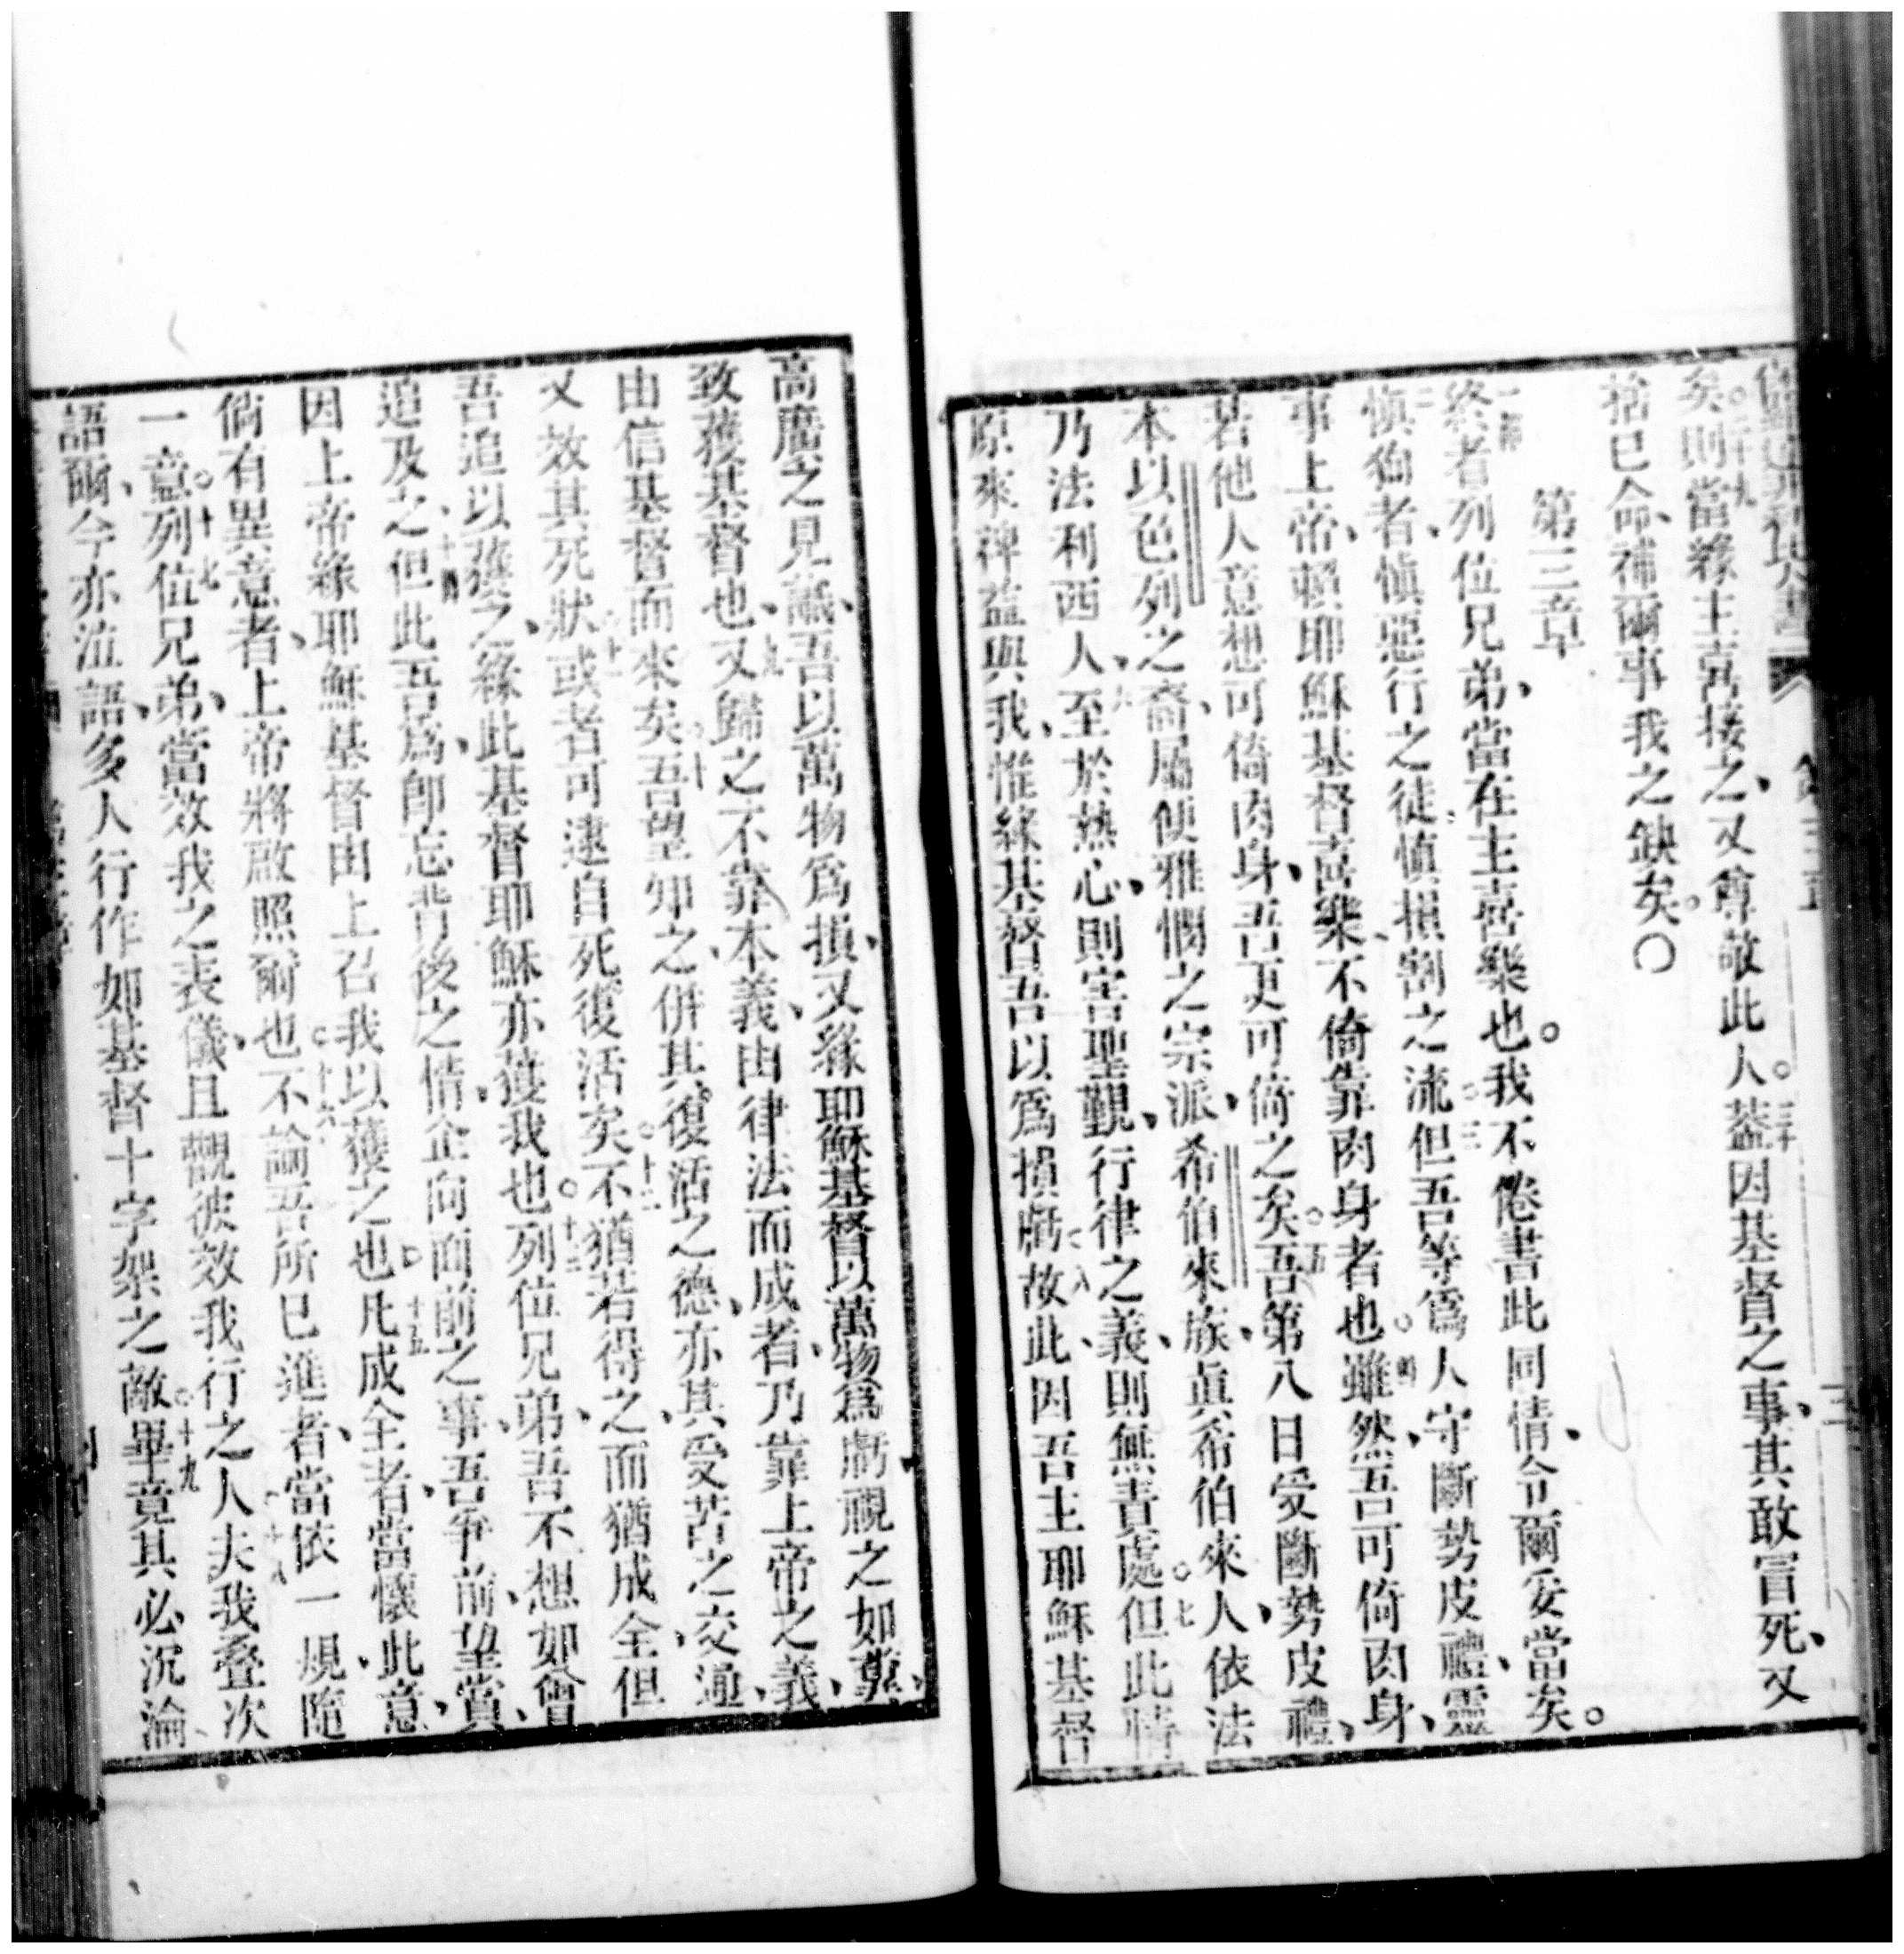 矣。二十九則當緣主喜接之、又尊敬此人。三十葢因基督之事、其敢冒死、又
捨己命、補爾事我之缺矣。〇
第三章
一節終者列位兄弟、當在主喜樂也。我不倦書此同情、令爾妥當矣。
二慎狗者、慎惡行之徒、慎損割之流。三但吾等爲人守斷勢皮禮、靈
事上帝、賴耶穌基督喜樂、不倚靠肉身者也。四雖然、吾可倚肉身、
若他人意想可倚肉身、吾更可倚之矣。五吾第八日受斷勢皮禮、
本以色列之裔、屬便雅憫之宗派、希伯來族、眞希伯來人、依法
乃法利西人、六至於熱心、則害聖覲、行律之義、則無責處。七但此情
原來裨益與我、惟緣基督吾以爲損虧。八故此、因吾主耶穌基督
高廣之見識、吾以萬物爲損、又緣耶穌基督以萬物爲虧、視之如糞、
致獲基督也、九又歸之不靠本義、由律法而成者、乃靠上帝之義、
由信基督而來矣。十吾望知之、併其復活之德、亦其受苦之交通、
又效其死狀、十一或者可逮自死復活矣。十二不猶若得之、而猶成全、但
吾追以獲之、緣此基督耶穌亦獲我也。十三列位兄弟、吾不想如曾
追及之、十四但此吾爲、卽忘背後之情、企向面前之事、吾爭前望賞、
因上帝緣耶穌基督由上召我以獲之也。十五凡成全者、當懷此意、
倘有異意者、上帝將啟照爾也。十六不論吾所已進者、當依一規、隨
一意。十七列位兄弟、當效我之表儀、且觀彼效我行之人。十八夫我叠次
語爾、今亦泣語、多人行作如基督十字架之敵。十九畢竟其必沉淪、